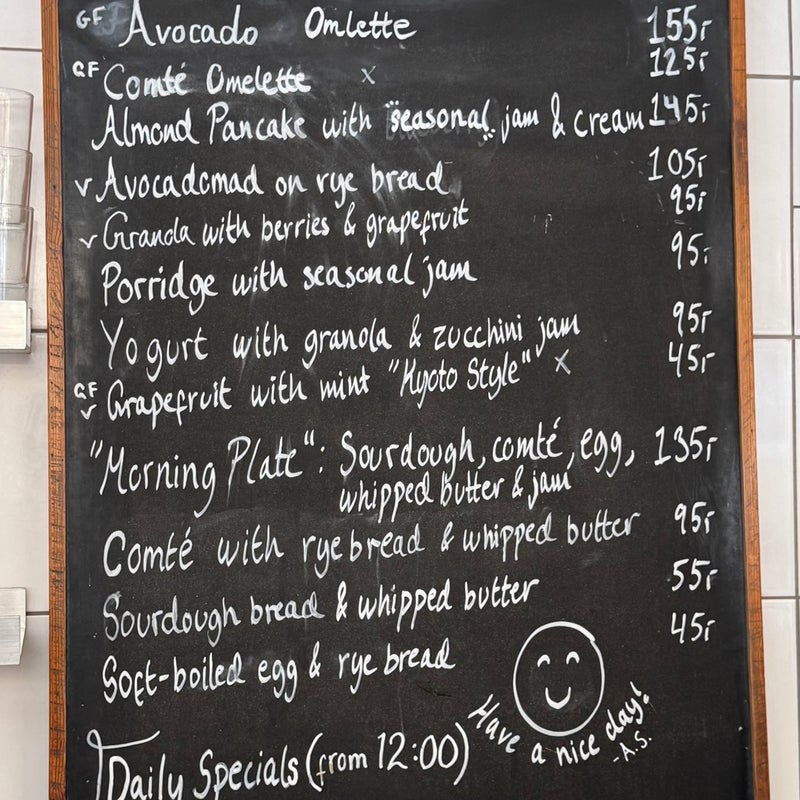 GF Avocado Omlette 155,-
GF Comté Omelette x 125,-
Almond Pancake with "seasonal" jam & cream 145,-
v Avocadomad on rye bread 105,-
v Granola with berries & grapefruit 95,-
Porridge with seasonal jam 95,-
Yogurt with granola & zucchini jam 95,-
GF v Grapefruit with mint "Kyoto Style" x 45,-
"Morning Plate": Sourdough, comté, egg, 135,-
whipped butter & jam
Comté with rye bread & whipped butter 95,-
Sourdough bread & whipped butter 55,-
Soft-boiled egg & rye bread 45,-
Have a nice day!
-A.S.
Daily Specials (from 12:00)